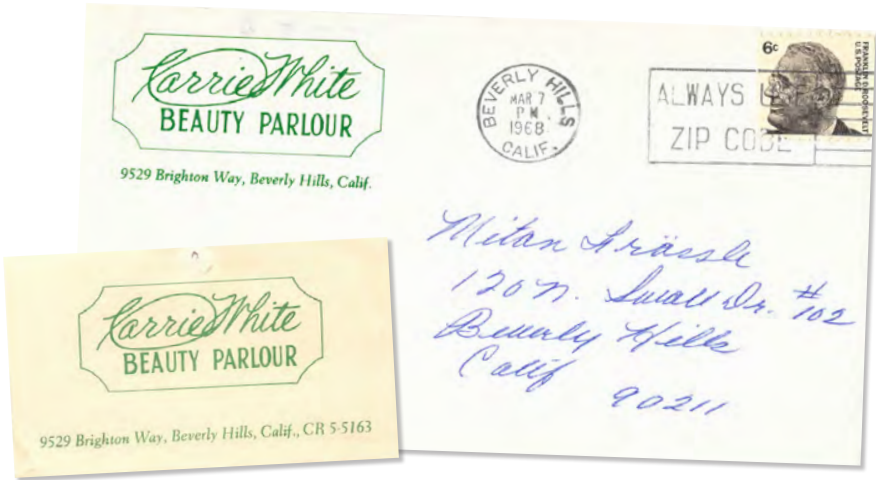 Carrie White
BEAUTY PARLOUR
9529 Brighton Way, Beverly Hills, Calif.
BEVERLY HILLS
MAR 7
PM
1968
CALIF.
ALWAYS USE
ZIP CODE
6c
FRANKLIN D. ROOSEVELT
U.S. POSTAGE
Milan
120 N. Swall Dr. #102
Beverly Hills
Calif
90211
Carrie White
BEAUTY PARLOUR
9529 Brighton Way, Beverly Hills, Calif., CR 5-5163